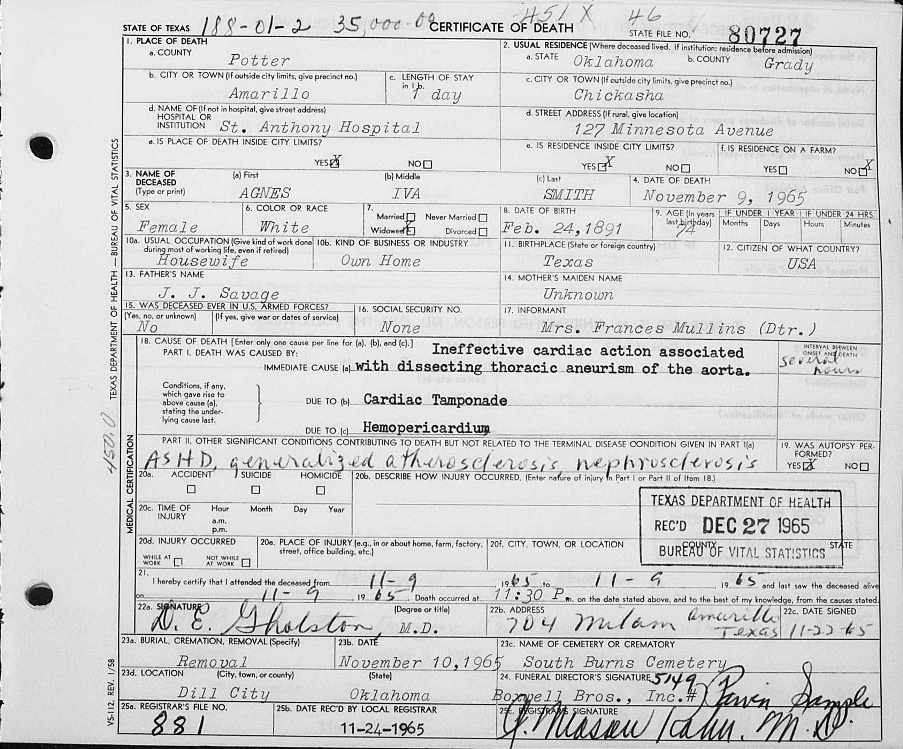 STATE OF TEXAS 188-01-2 35,000-00 CERTIFICATE OF DEATH 451 X 46 STATE FILE NO. 80727
1. PLACE OF DEATH
a. COUNTY Potter
2. USUAL RESIDENCE (Where deceased lived. If institution: residence before admission)
a. STATE Oklahoma b. COUNTY Grady
b. CITY OR TOWN (If outside city limits, give precinct no.) Amarillo
c. LENGTH OF STAY in 1 b. 1 day
c. CITY OR TOWN (If outside city limits, give precinct no.) Chickasha
d. NAME OF (If not in hospital, give street address) HOSPITAL OR INSTITUTION St. Anthony Hospital
d. STREET ADDRESS (If rural, give location) 127 Minnesota Avenue
e. IS PLACE OF DEATH INSIDE CITY LIMITS? YES X NO
e. IS RESIDENCE INSIDE CITY LIMITS? YES X NO
f. IS RESIDENCE ON A FARM? YES NO X
3. NAME OF DECEASED (Type or print) (a) First AGNES (b) Middle IVA (c) Last SMITH
4. DATE OF DEATH November 9, 1965
5. SEX Female
6. COLOR OR RACE White
7. Married Never Married Widowed X Divorced
8. DATE OF BIRTH Feb. 24, 1891
9. AGE (In years last birthday) 74 IF UNDER 1 YEAR Months Days IF UNDER 24 HRS. Hours Minutes
10a. USUAL OCCUPATION (Give kind of work done during most of working life, even if retired) Housewife
10b. KIND OF BUSINESS OR INDUSTRY Own Home
11. BIRTHPLACE (State or foreign country) Texas
12. CITIZEN OF WHAT COUNTRY? USA
13. FATHER'S NAME J. J. Savage
14. MOTHER'S MAIDEN NAME Unknown
15. WAS DECEASED EVER IN U.S. ARMED FORCES? (Yes, no, or unknown) No (If yes, give war or dates of service)
16. SOCIAL SECURITY NO. None
17. INFORMANT Mrs. Frances Mullins (Dtr.)
18. CAUSE OF DEATH [Enter only one cause per line for (a), (b), and (c).]
PART I. DEATH WAS CAUSED BY:
IMMEDIATE CAUSE (a) Ineffective cardiac action associated
with dissecting thoracic aneurism of the aorta.
INTERVAL BETWEEN ONSET AND DEATH several hours
Conditions, if any, which gave rise to above cause (a), stating the underlying cause last.
DUE TO (b) Cardiac Tamponade
DUE TO (c) Hemopericardium
PART II. OTHER SIGNIFICANT CONDITIONS CONTRIBUTING TO DEATH BUT NOT RELATED TO THE TERMINAL DISEASE CONDITION GIVEN IN PART I(a)
ASHD, generalized atherosclerosis, nephrosclerosis
19. WAS AUTOPSY PERFORMED? YES X NO
20a. ACCIDENT SUICIDE HOMICIDE
20b. DESCRIBE HOW INJURY OCCURRED. (Enter nature of injury in Part I or Part II of Item 18.)
20c. TIME OF INJURY Hour a.m. p.m. Month Day Year
TEXAS DEPARTMENT OF HEALTH
REC'D DEC 27 1965
BUREAU OF VITAL STATISTICS
20d. INJURY OCCURRED WHILE AT WORK NOT WHILE AT WORK
20e. PLACE OF INJURY (e.g., in or about home, farm, factory, street, office building, etc.)
20f. CITY, TOWN, OR LOCATION COUNTY STATE
21. I hereby certify that I attended the deceased from 11-9, 1965 to 11-9, 1965 and last saw the deceased alive
on 11-9 1965. Death occurred at 11:30 P.m. on the date stated above, and to the best of my knowledge, from the causes stated.
22a. SIGNATURE D. E. Gholston, (Degree or title) M.D.
22b. ADDRESS 704 Milam Amarillo Texas
22c. DATE SIGNED 11-22-65
23a. BURIAL, CREMATION, REMOVAL (Specify) Removal
23b. DATE November 10, 1965
23c. NAME OF CEMETERY OR CREMATORY South Burns Cemetery
23d. LOCATION (City, town, or county) Dill City (State) Oklahoma
24. FUNERAL DIRECTOR'S SIGNATURE 5149 Boxwell Bros., Inc.#
25a. REGISTRAR'S FILE NO. 881
25b. DATE REC'D BY LOCAL REGISTRAR 11-24-1965
25c. REGISTRAR'S SIGNATURE
VS-112, REV. 1/58
MEDICAL CERTIFICATION
TEXAS DEPARTMENT OF HEALTH — BUREAU OF VITAL STATISTICS